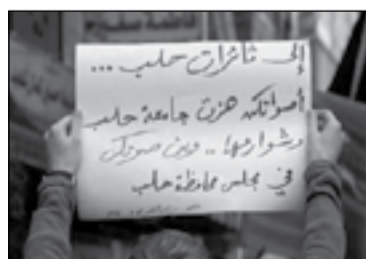 إلى ثائرات حلب ...
أصواتكن هزت جامعة حلب
وشوارعها .. وين صوتكن
في مجلس محافظة حلب